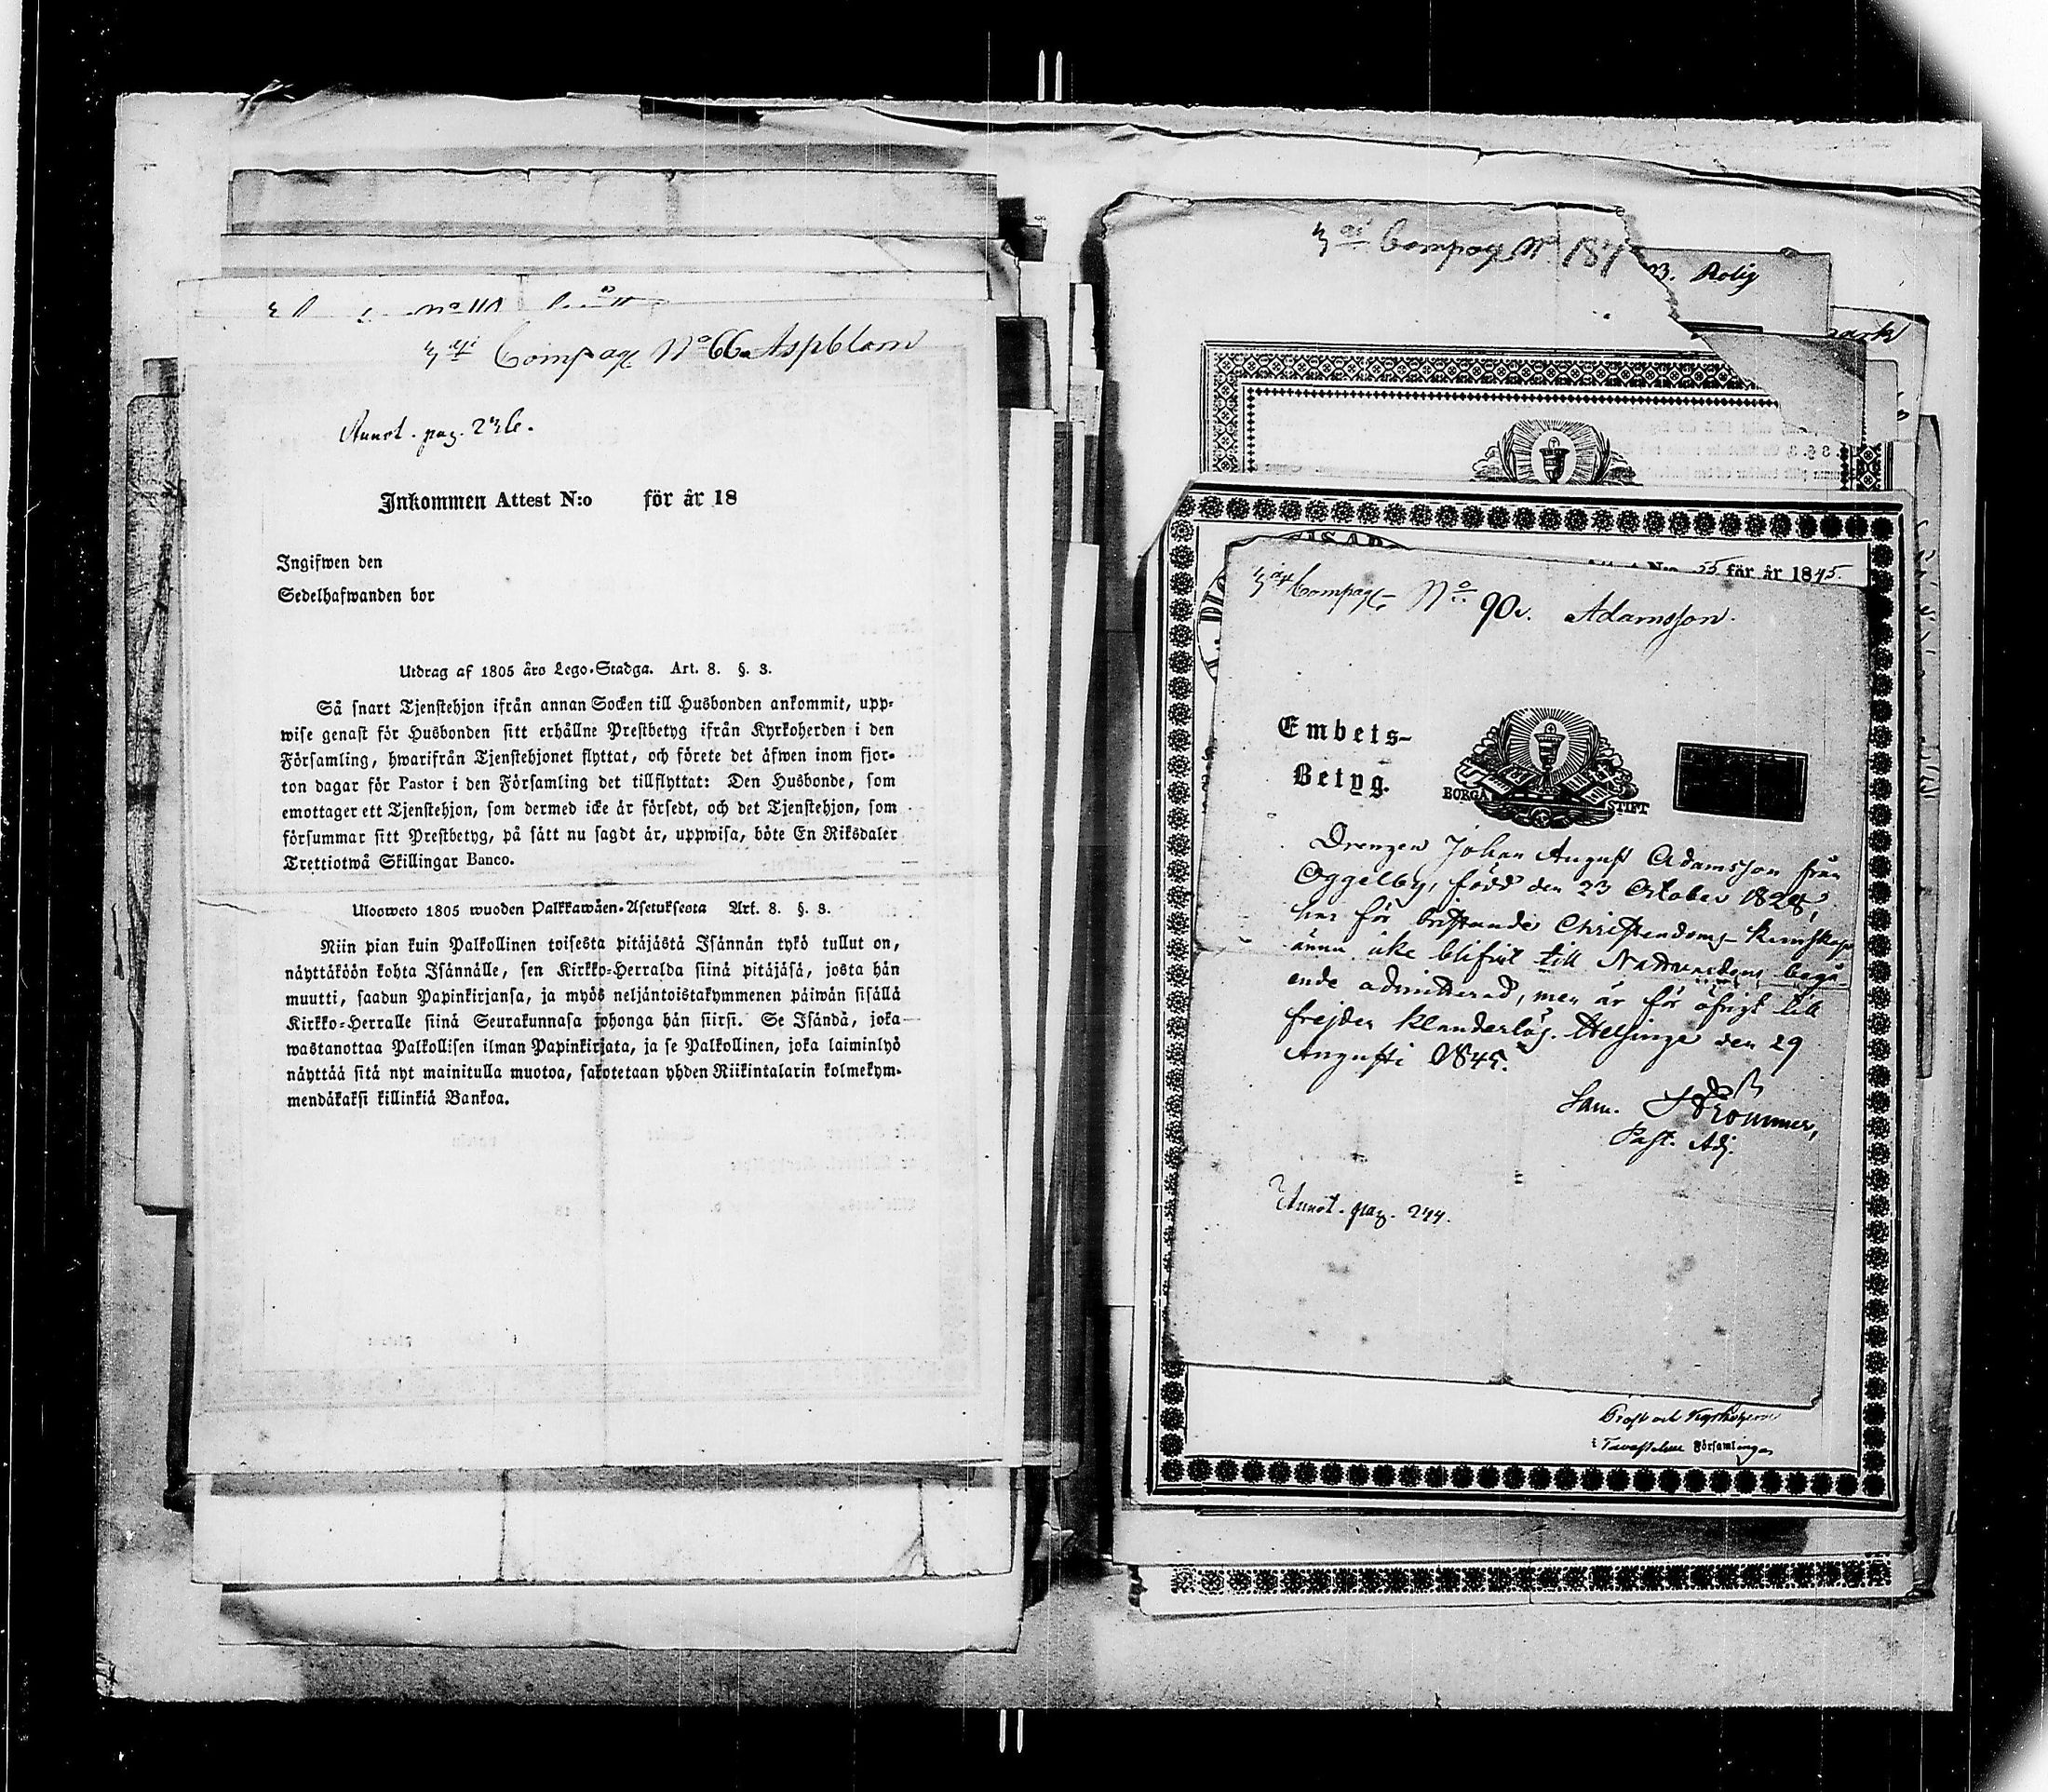 Compag N:o 66. Aspblom
Annot. pag. 236.
Inkommen Attest N:o för år 18
Ingifwen den
Sedelhafwanden bor
Utdrag af 1805 års Lego-Stadga. Art. 8. §. 3.
Så snart Tjenstehjon ifrån annan Socken till Husbonden ankommit, upp-
wise genast för Husbonden sitt erhållne Prestbetyg ifrån Kyrkoherden i den
Församling, hwarifrån Tjenstehjonet flyttat, och förete det äfwen inom fjor-
ton dagar för Pastor i den Församling det tillflyttat: Den Husbonde, som
emottager ett Tjenstehjon, som dermed icke är försedt, och det Tjenstehjon, som
försummar sitt Prestbetyg, på sätt nu sagdt är, uppwisa, böte En Riksdaler
Trettiotwå Skillingar Banco.
Ulosweto 1805 wuoden Palkkawäen-Asetuksesta Art. 8. §. 3.
Niin pian kuin Palkollinen toisesta pitäjästä Isännän tykö tullut on,
näyttäköön kohta Isännälle, sen Kirkko-Herralda siinä pitäjäsä, josta hän
muutti, saadun Papinkirjansa, ja myös neljäntoistakymmenen päiwän sisällä
Kirkko-Herralle siinä Seurakunnasa johonga hän siirsi. Se Isändä, joka
wastanottaa Palkollisen ilman Papinkirjata, ja se Palkollinen, joka laiminlyö
näyttää sitä nyt mainitulla muotoa, sakotetaan yhden Riikintalarin kolmekym-
mendäkaksi killinkiä Bankoa.
Compag N:o 187
Rolig
för år 1845.
Compag N:o 90. Adamsson.
Embets-
Betyg.
BORGÅ STIFT
Drengen Johan August Adamsson från
Oggelby, född den 23 October 1828,
har för bristande Christendoms-kunskap
ännu icke blifvit till Nattvardens begå-
ende admitterad, men är för öfrigt till
frejden klanderlös. Helsinge den 29
Augusti 1845.
Sam. Strömmer,
Past. Adj.
Annot. pag. 244.
Prost och Kyrkoherde
i Tavastehus Församlingar